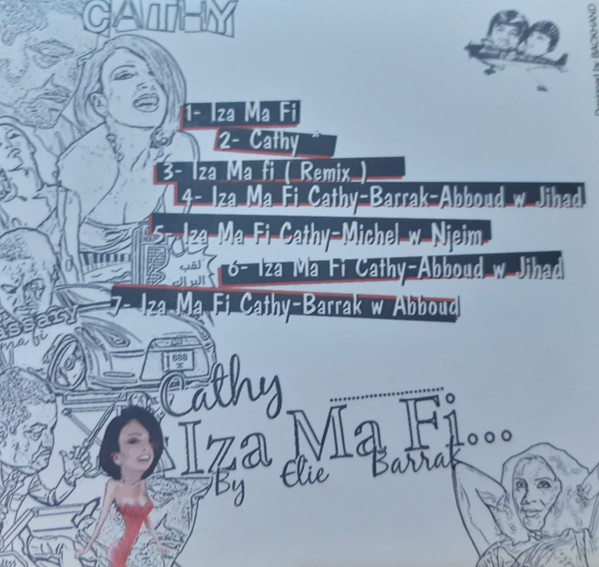 CATHY
Designed by BACKHAND
1- Iza Ma Fi
2- Cathy
3- Iza Ma fi ( Remix )
4- Iza Ma Fi Cathy-Barrak-Abboud w Jihad
5- Iza Ma Fi Cathy-Michel w Njeim
لقب
البراك
6- Iza Ma Fi Cathy-Abboud w Jihad
7- Iza Ma Fi Cathy-Barrak w Abboud
ma fi
888
Cathy
Iza Ma Fi...
By Elie Barrak